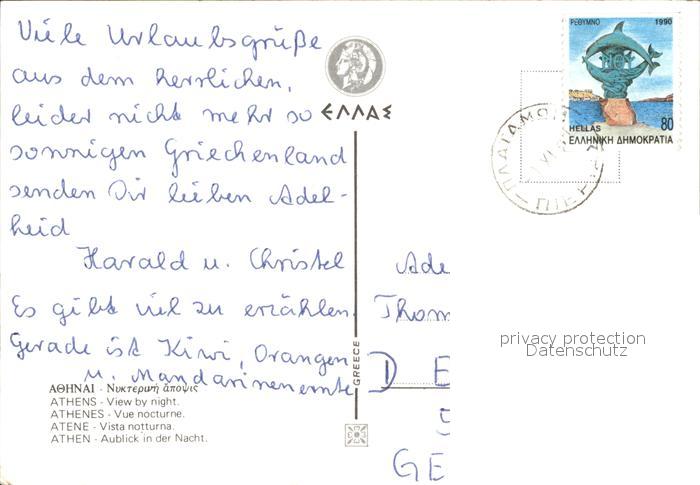 Viele Urlaubsgrüße
aus dem herrlichen,
leider nicht mehr so
sonnigen Griechenland
senden Dir lieben Adel-
heid
Harald u. Christel
Es gibt viel zu erzählen.
Gerade ist Kiwi, Orangen
u. Mandarinenernte
ΑΘΗΝΑΙ - Νυκτερινή ἄποψις
ATHENS - View by night.
ATHENES - Vue nocturne.
ATENE - Vista notturna.
ATHEN - Aublick in der Nacht.
ΕΛΛΑΣ
GREECE
ΡΕΘΥΜΝΟ 1990
HELLAS 80
ΕΛΛΗΝΙΚΗ ΔΗΜΟΚΡΑΤΙΑ
ΠΛΑΤΑΜΩ
Ade
Thom
D E
5
GE
privacy protection
Datenschutz